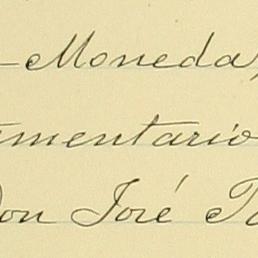 -Moneda,
mentario
Don José